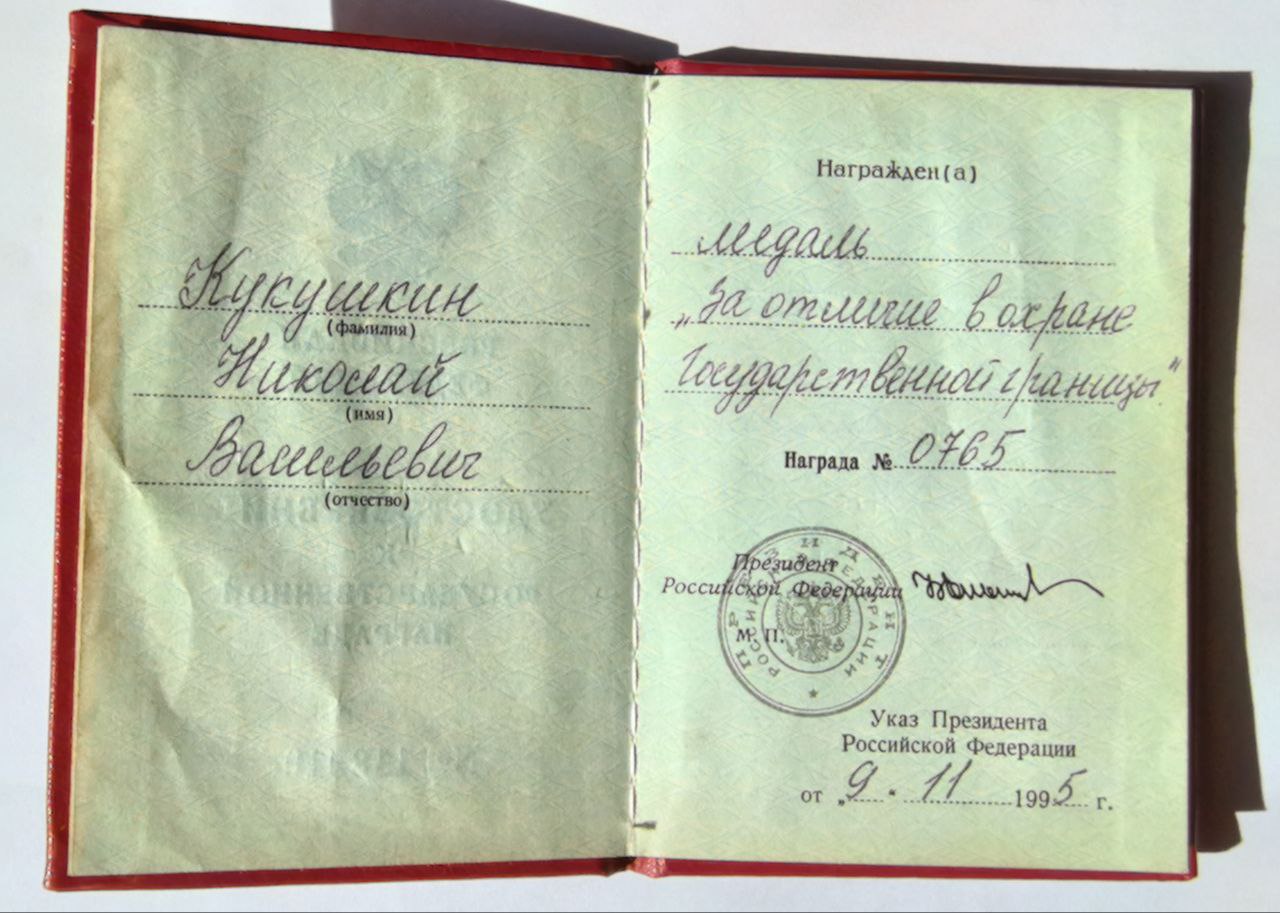 Кукушкин
(фамилия)
Николай
(имя)
Васильевич
(отчество)
Награжден(а)
медаль
„За отличие в охране
Государственной границы“
Награда № 0765
Президент
Российской Федерации
М. П.
ПРЕЗИДЕНТ
РОССИЙСКОЙ ФЕДЕРАЦИИ
Указ Президента
Российской Федерации
от „9“ 11 1995 г.